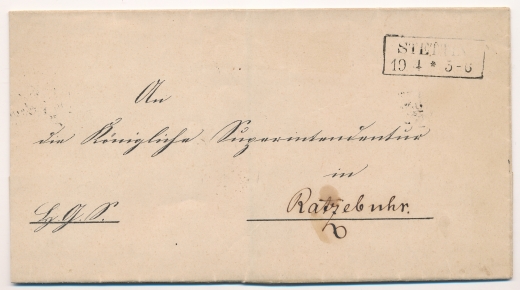 STETTIN
19 4 * 5-6
An
die Königliche Superintendentur
in
H. G. S.
Ratzebuhr.